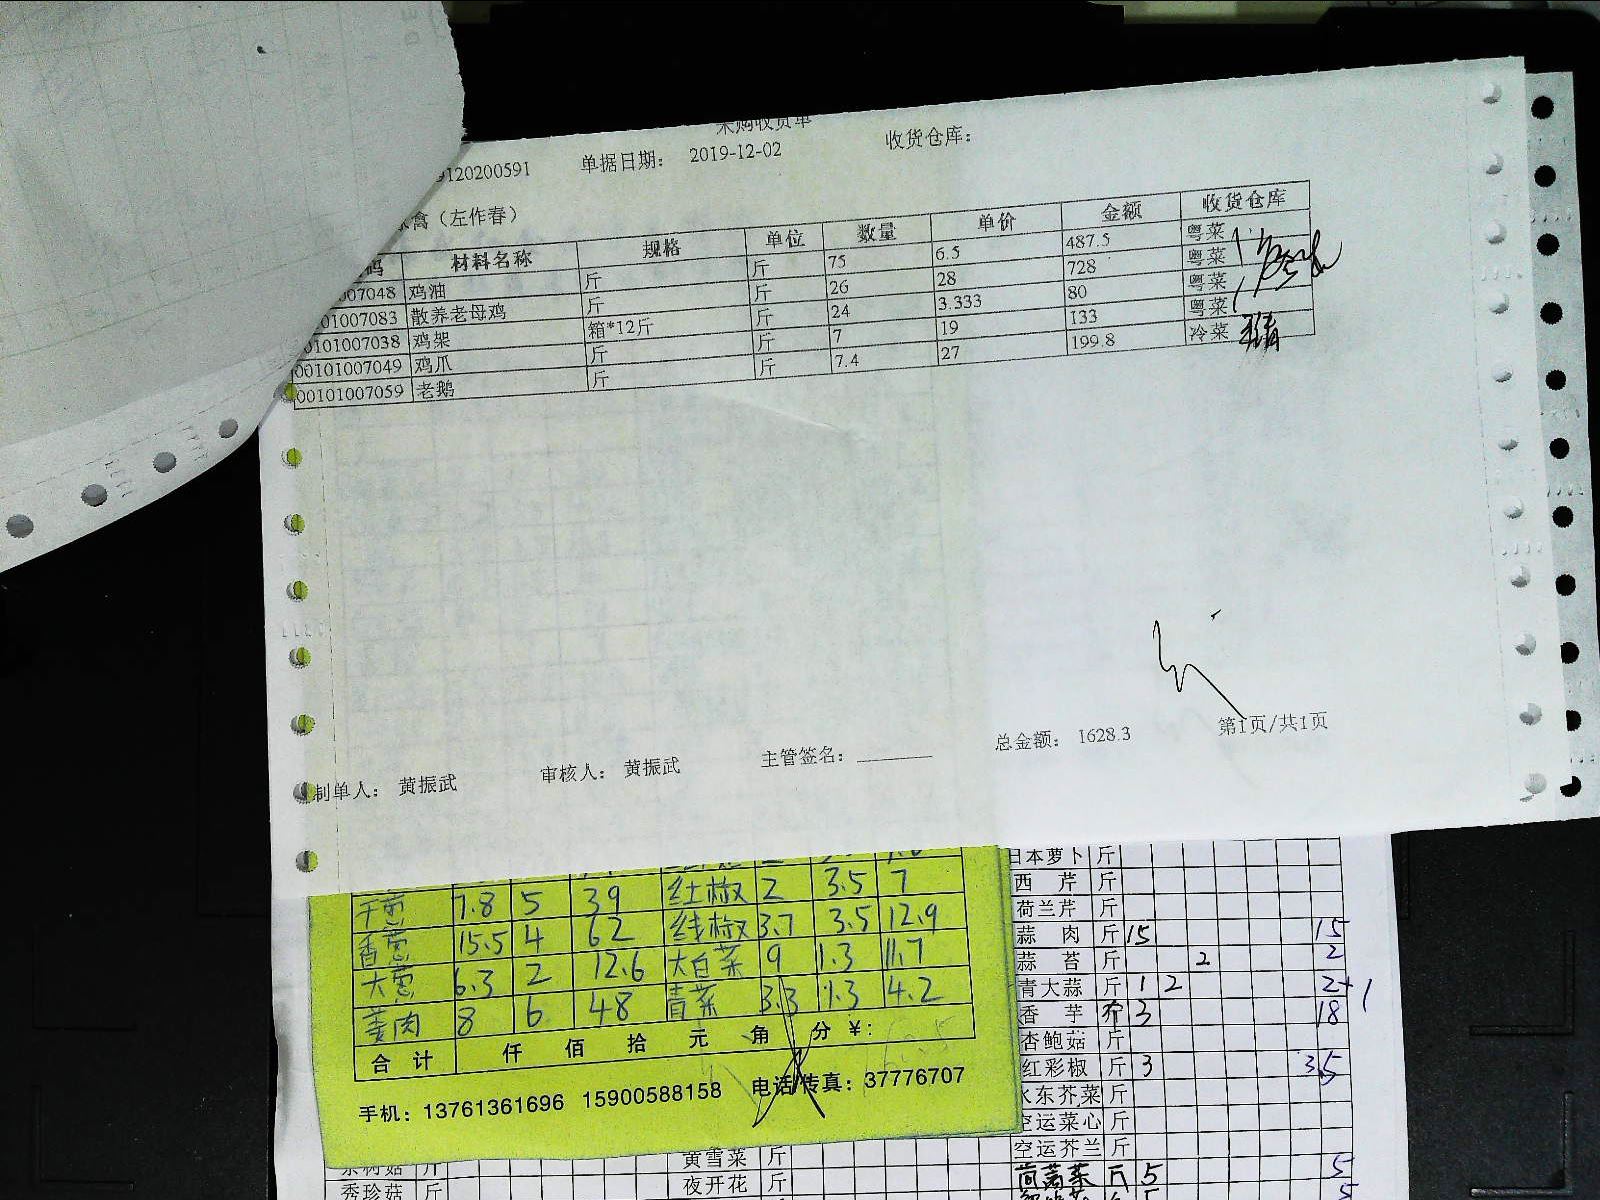 采购收货单
9120200591 单据日期: 2019-12-02 收货仓库:
禽(左作春)
码 材料名称 规格 单位 数量 单价 金额 收货仓库
007048 鸡油 斤 斤 75 6.5 487.5 粤菜
01007083 散养老母鸡 斤 斤 26 28 728 粤菜
0101007038 鸡架 箱*12斤 斤 24 3.333 80 粤菜
00101007049 鸡爪 斤 斤 7 19 133 粤菜
00101007059 老鹅 斤 斤 7.4 27 199.8 冷菜
总金额: 1628.3 第1页/共1页
制单人: 黄振武 审核人: 黄振武 主管签名:
7.8 5 39 红椒 2 3.5 7
香葱 15.5 4 62 线椒 3.7 3.5 12.9
大葱 6.3 2 12.6 大白菜 9 1.3 11.7
姜肉 8 6 48 青菜 3.3 1.3 4.2
合计 仟 佰 拾 元 角 分 ¥:
手机: 13761361696 15900588158 电话/传真: 37776707
日本萝卜 斤
西芹 斤
荷兰芹 斤
蒜肉 斤 15 15
蒜苔 斤 2 2
青大蒜 斤 1 2 2+1
香芋 3 18
杏鲍菇 斤
红彩椒 斤 3 3.5
水东芥菜 斤
空运菜心 斤
空运芥兰 斤
茼蒿菜 斤 5 5
黄雪菜 斤
秀珍菇 斤 夜开花 斤